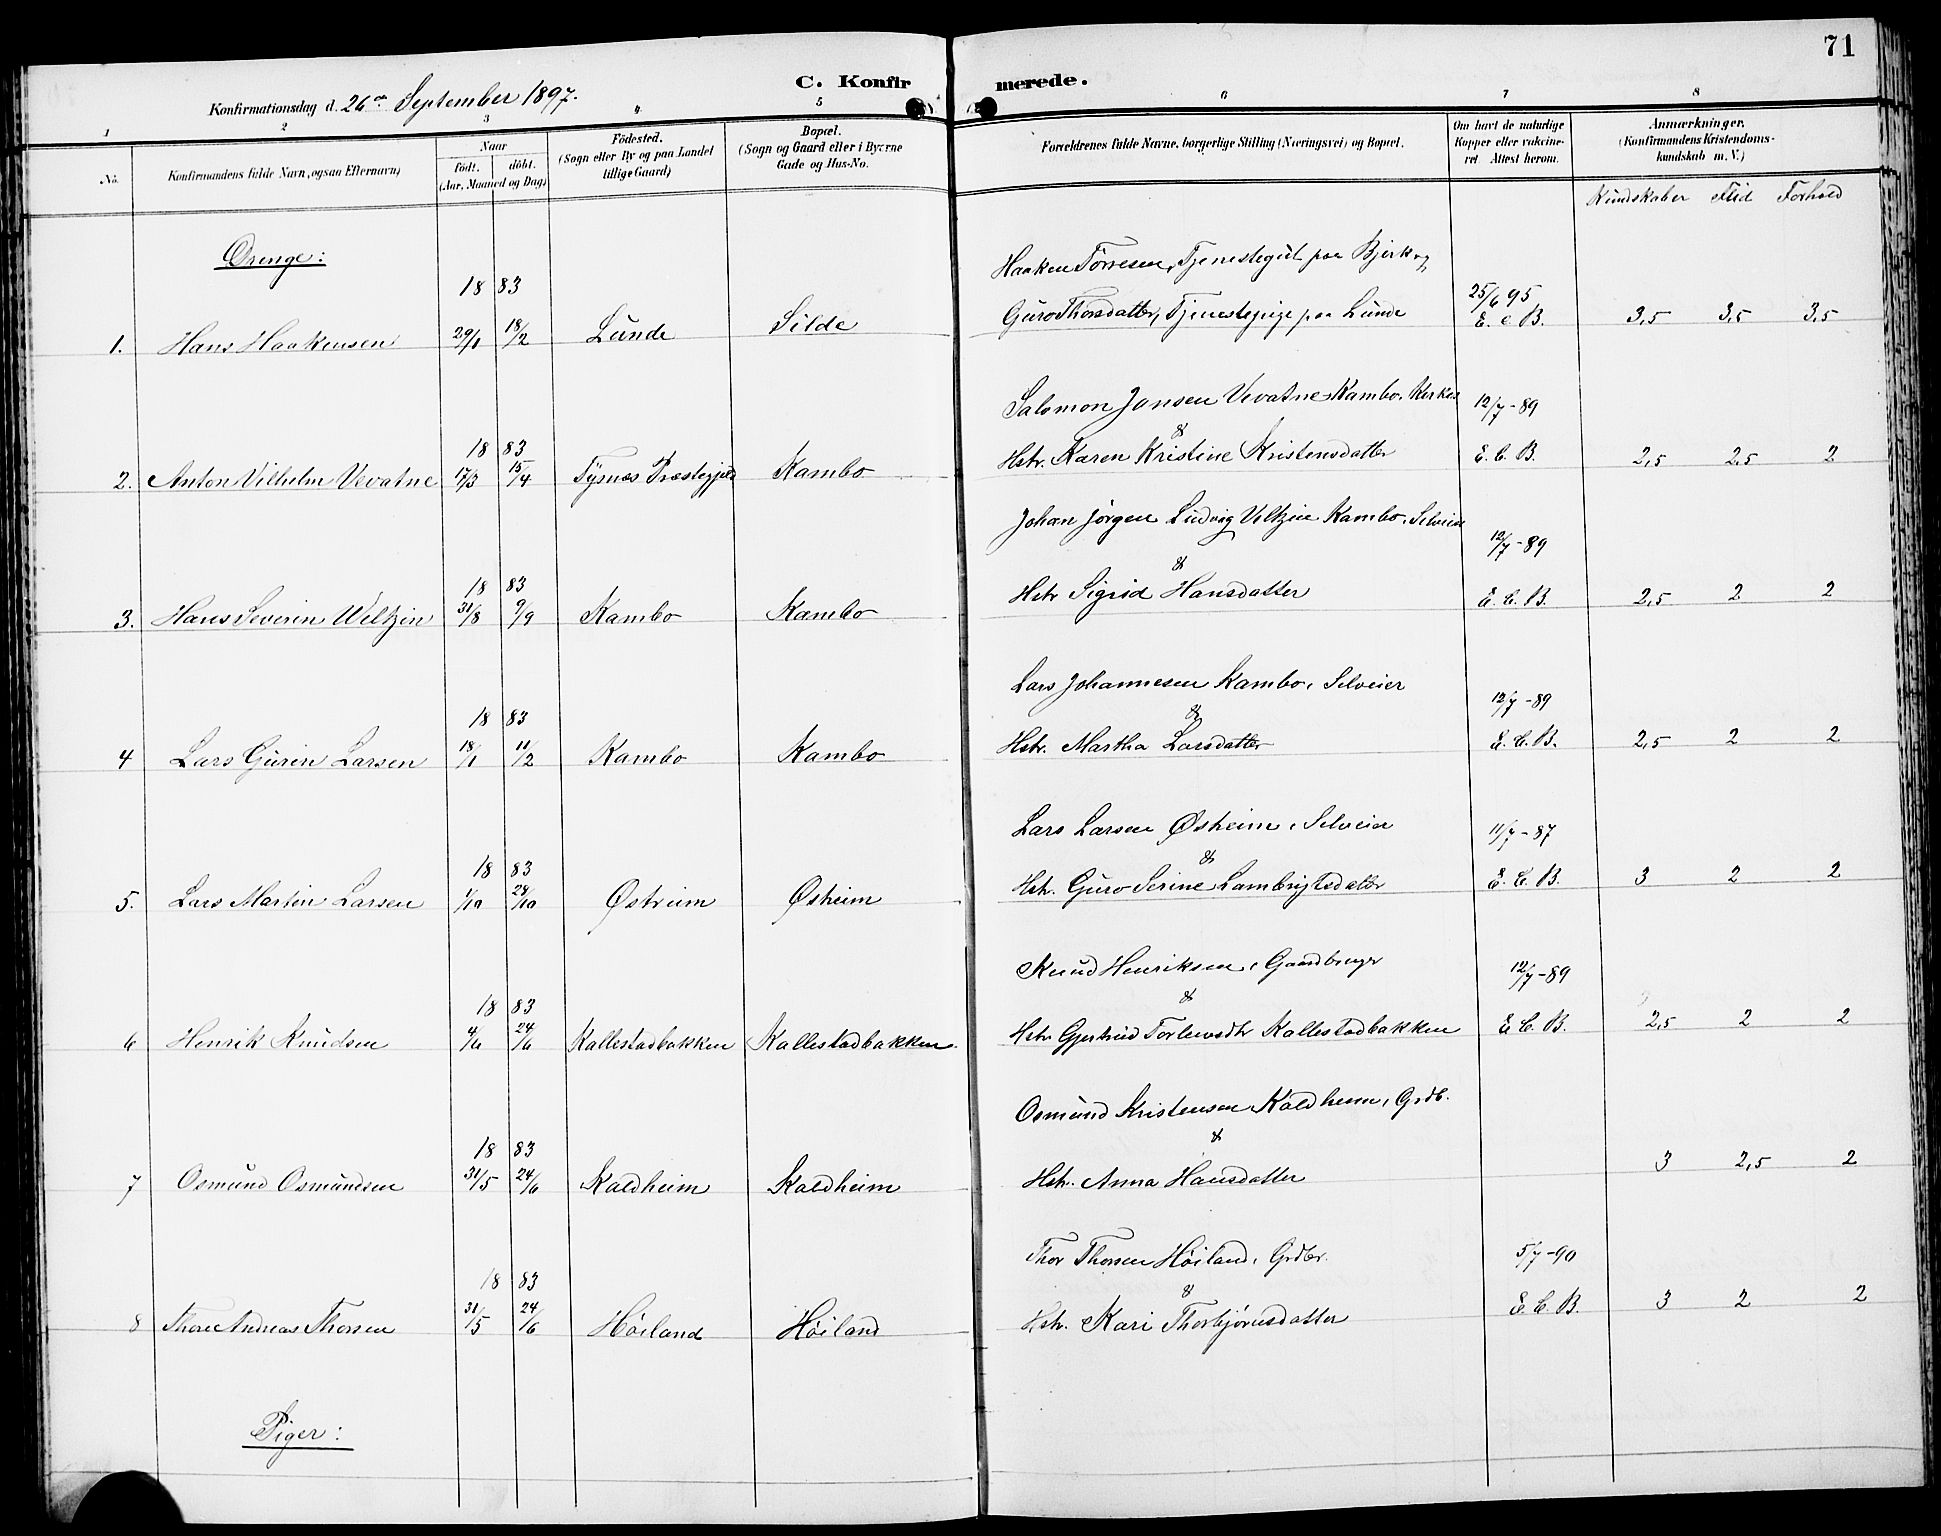 71
C. Konfir merede.
Konfirmationsdag d. 26de September 1897.
1 2 3 4 5 6 7 8
No. Konfirmandens fulde Navn, ogsaa Efternavn) Naar födt. döbt. (Aar, Maaned og Dag) Födested. (Sogn eller By og paa Landet tillige Gaard) Bopæl. (Sogn og Gaard eller i Byerne Gade og Hus-No. Forældrenes fulde Navne, borgerlige Stilling (Næringsvei) og Bopæl. Om havt de naturlige Kopper eller vakcineret Attest herom. Anmærkninger. (Konfirmandens Kristendomskundskab m. V.)
Kundskaber Flid Forhold
Drenge:
Haaken Torresen, Tjenestegut paa Bjerk og
18 83
25/6 95
1. Hans Haakensen 29/1 18/2 Lunde Silde Guro Thorsdatter, Tjenestepige paa Lunde E. C. B. 3,5 3,5 3,5
Salomon Jansen Vevatne Kambo, 12/7-89
18 83 &
2. Anton Vilhelm Vevatne 17/3 15/4 Tysnæs Præstegjeld Kambo Hstr. Karen Kristine Kristensdatter E. C. B. 2,5 2,5 2
Johan Jörgen Ludvig Veltzin Kambo, Selveier 12/7-89
18 83 &
3. Hans Severin Weltzin 31/8 9/9 Kambo Kambo Hstr Sigrid Hansdatter E. C. B. 2,5 2 2
Lars Johannesen Kambo, Selveier 12/7-89
18 83 &
4 Lars Gurin Larsen 18/1 11/2 Kambo Kambo Hstr. Martha Larsdatter E. C. B. 2,5 2 2
Lars Larsen Østreim, Selveier 11/7-87
18 83 &
5. Lars Martin Larsen 1/10 24/10 Østreim Østreim Hstr. Guro Serine Lambrigtsdatter E. C. B. 3 2 2
Knud Henriksen, Gaardbruger 12/7-89
18 83 &
6 Henrik Knudsen 4/6 24/6 Kallestadbakken Kallestadbakken. Hstr Gjertrud Torleivsdtr Kallestadbakken E. C. B. 2,5 2 2
Osmund Kristensen Kaldheim, Grdb.
18 83 &
7 Osmund Osmundsen 31/5 24/6 Kaldheim Kaldheim Hstr. Anna Hansdatter 3 2,5 2
Thor Thorsen Höiland, Grdbr. 5/7-90
18 83 &
8 Thore Andreas Thorsen 31/5 24/6 Höiland Höiland Hstr. Kari Thorbjörnsdatter E. C. B. 3 2 2
Piger: